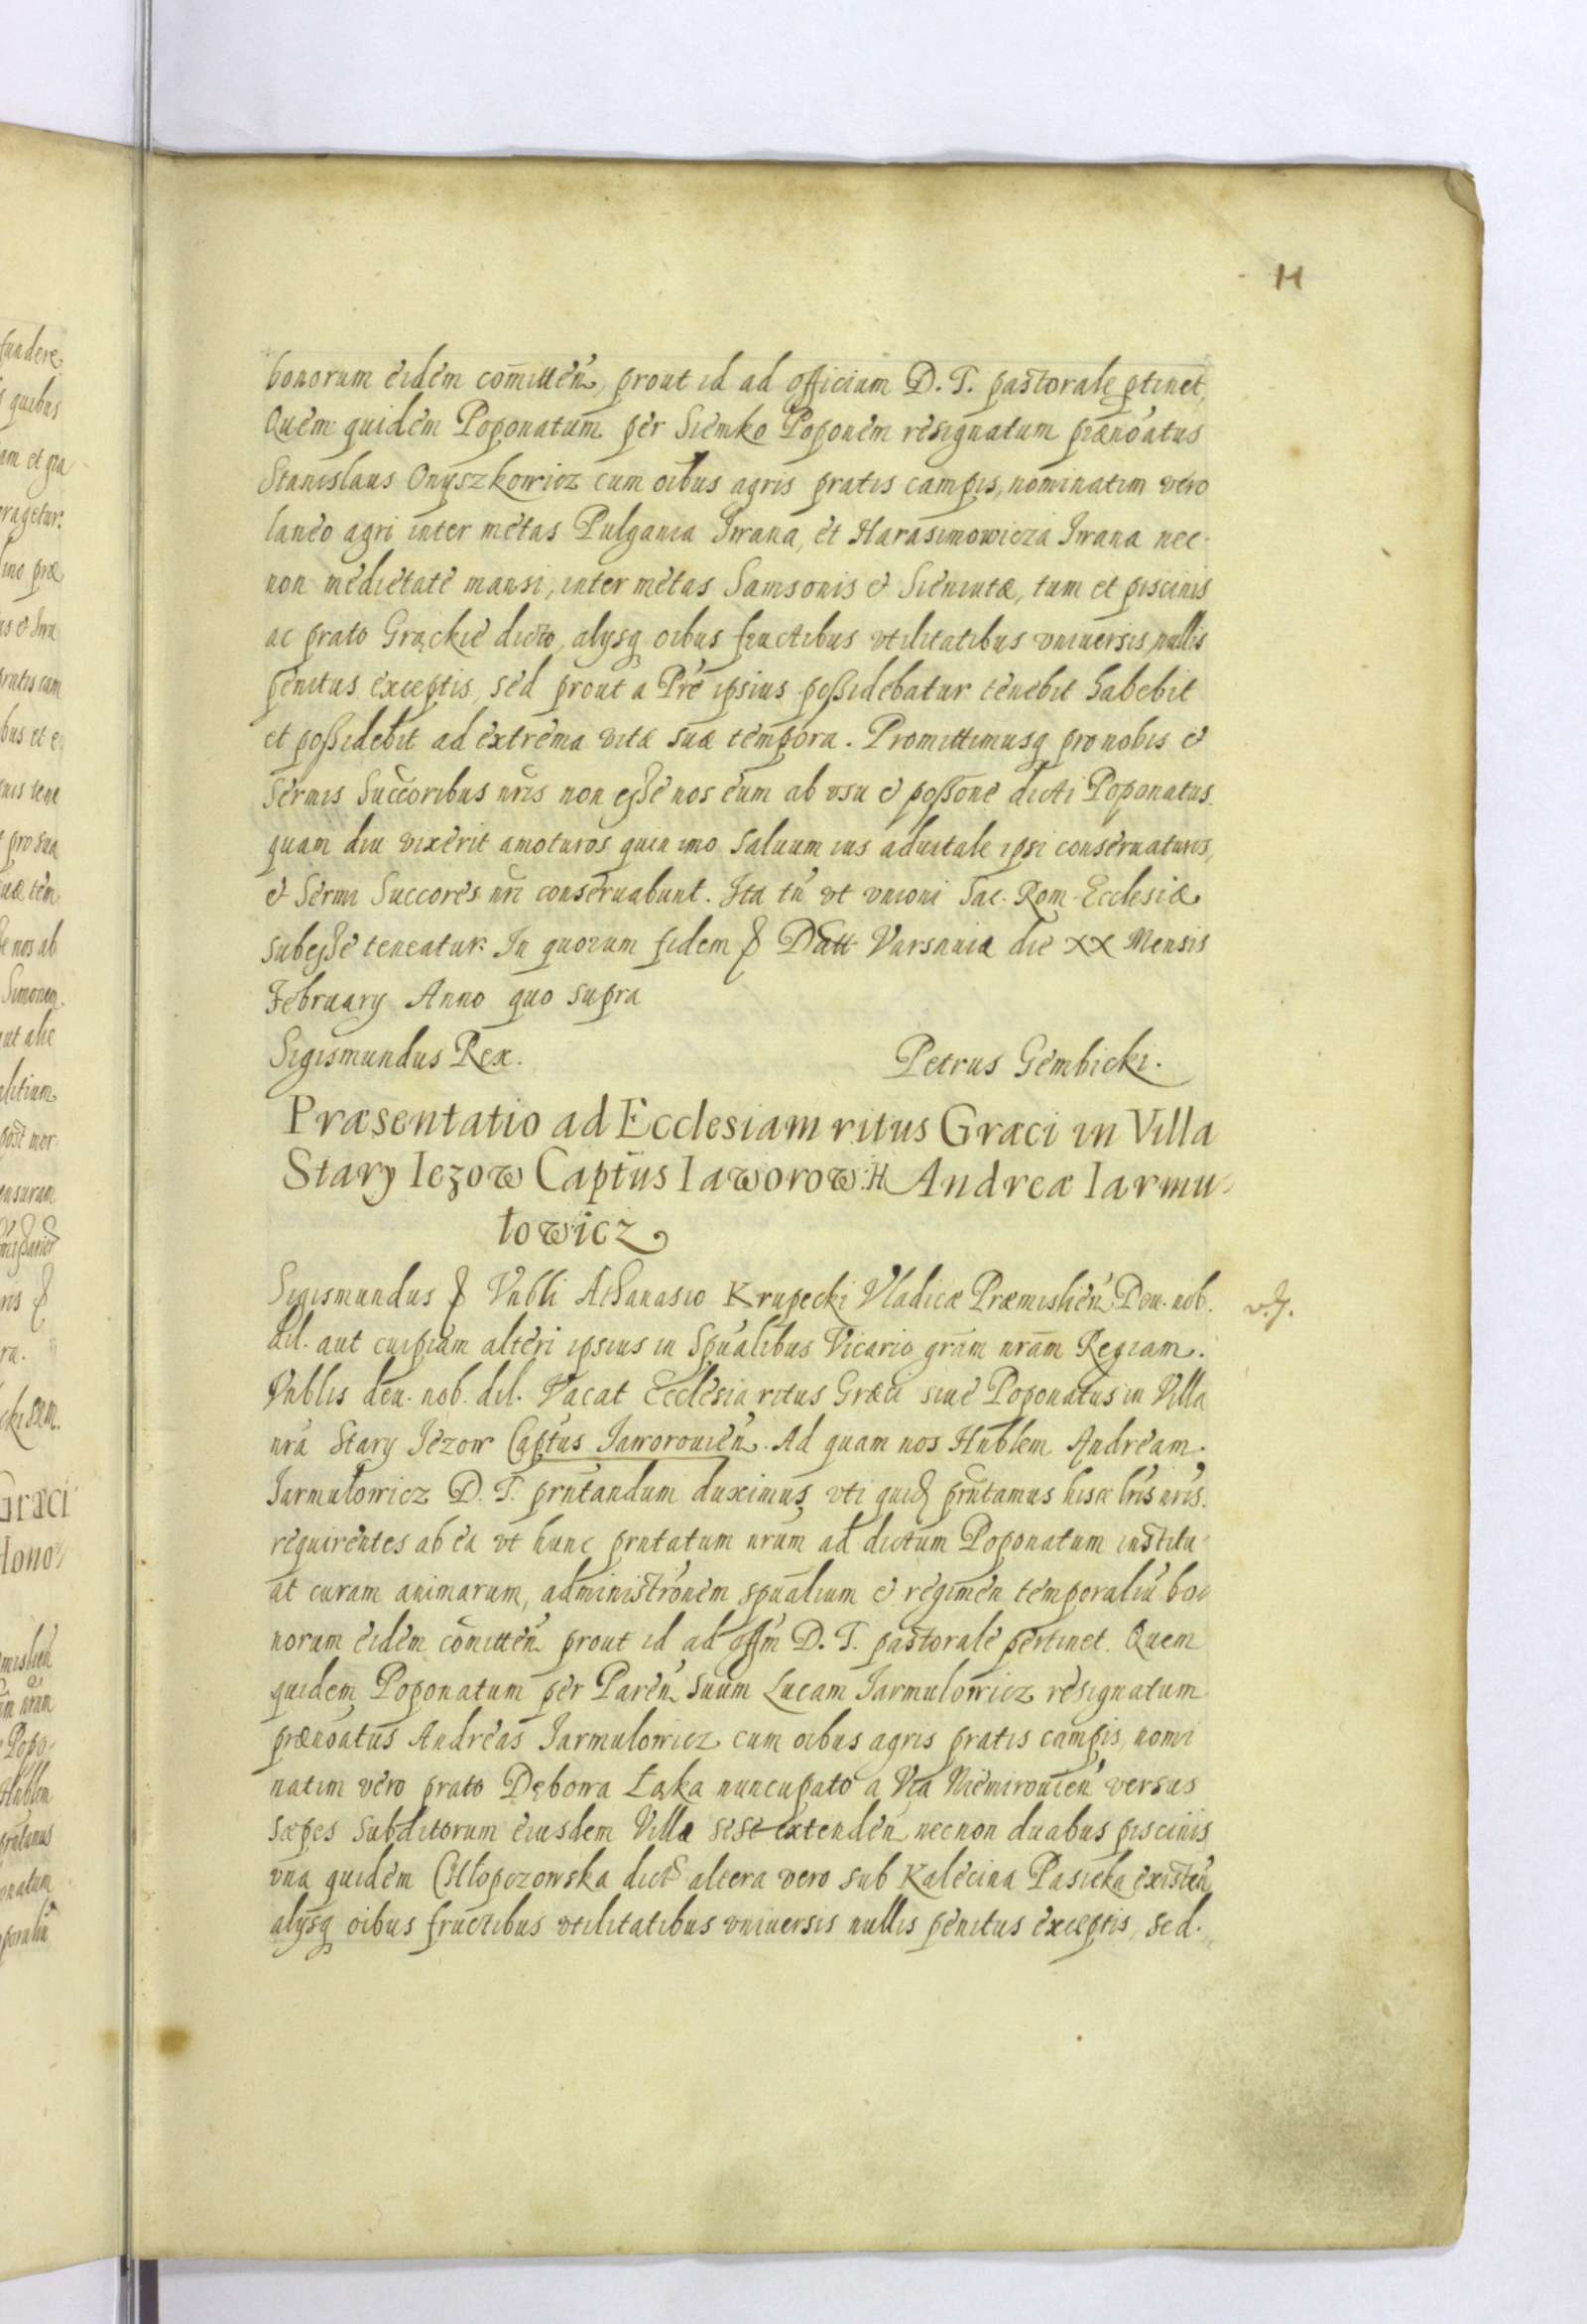 H
bonorum eidem com̄itteñ, prout id ad officium D. T. pastorale ptinet,
Quem quidem Poponatum per Siemko Poponem resignatum prænoatus
Stanislaus Onyszkowicz cum oibus agris pratis campis, nominatim vero
laneo agri inter metas Pulgania Iwana, et Harasimowicza Iwana nec
non medietate mansi, inter metas Samsonis & Sieniutæ, tum et piscinis
ac prato Grąckie dicto, alysq oibus fructibus vtilitatibus vniuersis, nullis
penitus exceptis, sed prout a Pre ipsius possidebatur tenebit habebit
et possidebit ad extrema vitæ suæ tempora. Promittimusq pro nobis &
Sermis Succoribus nris non esse nos eum ab vsu & possone dicti Poponatus
quam diu vixerit amoturos quin imo saluum ius aduitale ipsi conseruaturos,
& Sermi Succores nri conseruabunt. Ita tn̄ vt vnioni Sac. Rom. Ecclesiæ
subesse teneatur. In quorum fidem & Datt Varsauiæ die XX Mensis
February Anno quo supra
Sigismundus Rex. Petrus Gembicki.
Præsentatio ad Ecclesiam ritus Græci in Villa
Stary Iezow Capt̄us Iaworow: H Andreæ Iarmu
łowicz
Sigismundus & Vnbli Athanasio Krupecki Vladicæ Præmislien̄ Deu. nob. v.g.
dil. aut cuipiam alteri ipsius in Spualibus Vicario gram nram Regiam.
Vnblis deu. nob. dil. Vacat Ecclesia ritus Græci siue Poponatus in Villa
nra Stary Iezow Captus Iaworouien̄. Ad quam nos Hnblem Andream
Iarmułowicz D. T. prntandum duximus, vti quidē prntamus hisce lris nris.
requirentes ab ea vt hunc prntatum nrum ad dictum Poponatum institu
at curam animarum, administronem spualium & regimen temporaliū bo
norum eidem com̄itten̄ prout id ad offm D. T. pastorale pertinet. Quem
quidem Poponatum per Paren̄ suum Lucam Iarmulowicz resignatum
prænoatus Andreas Iarmulowicz cum oibus agris pratis campis, nomi
natim vero prato Dębowa Łąka nuncupato a Via Niemirouien̄ versus
sæpes subditorum eiusdem Villæ sese extenden̄ necnon duabus piscinis
vna quidem Chłopczowska dict altera vero sub Kalecina Pasieka existen̄
alysq oibus fructibus vtilitatibus vniuersis nullis penitus exceptis, sed